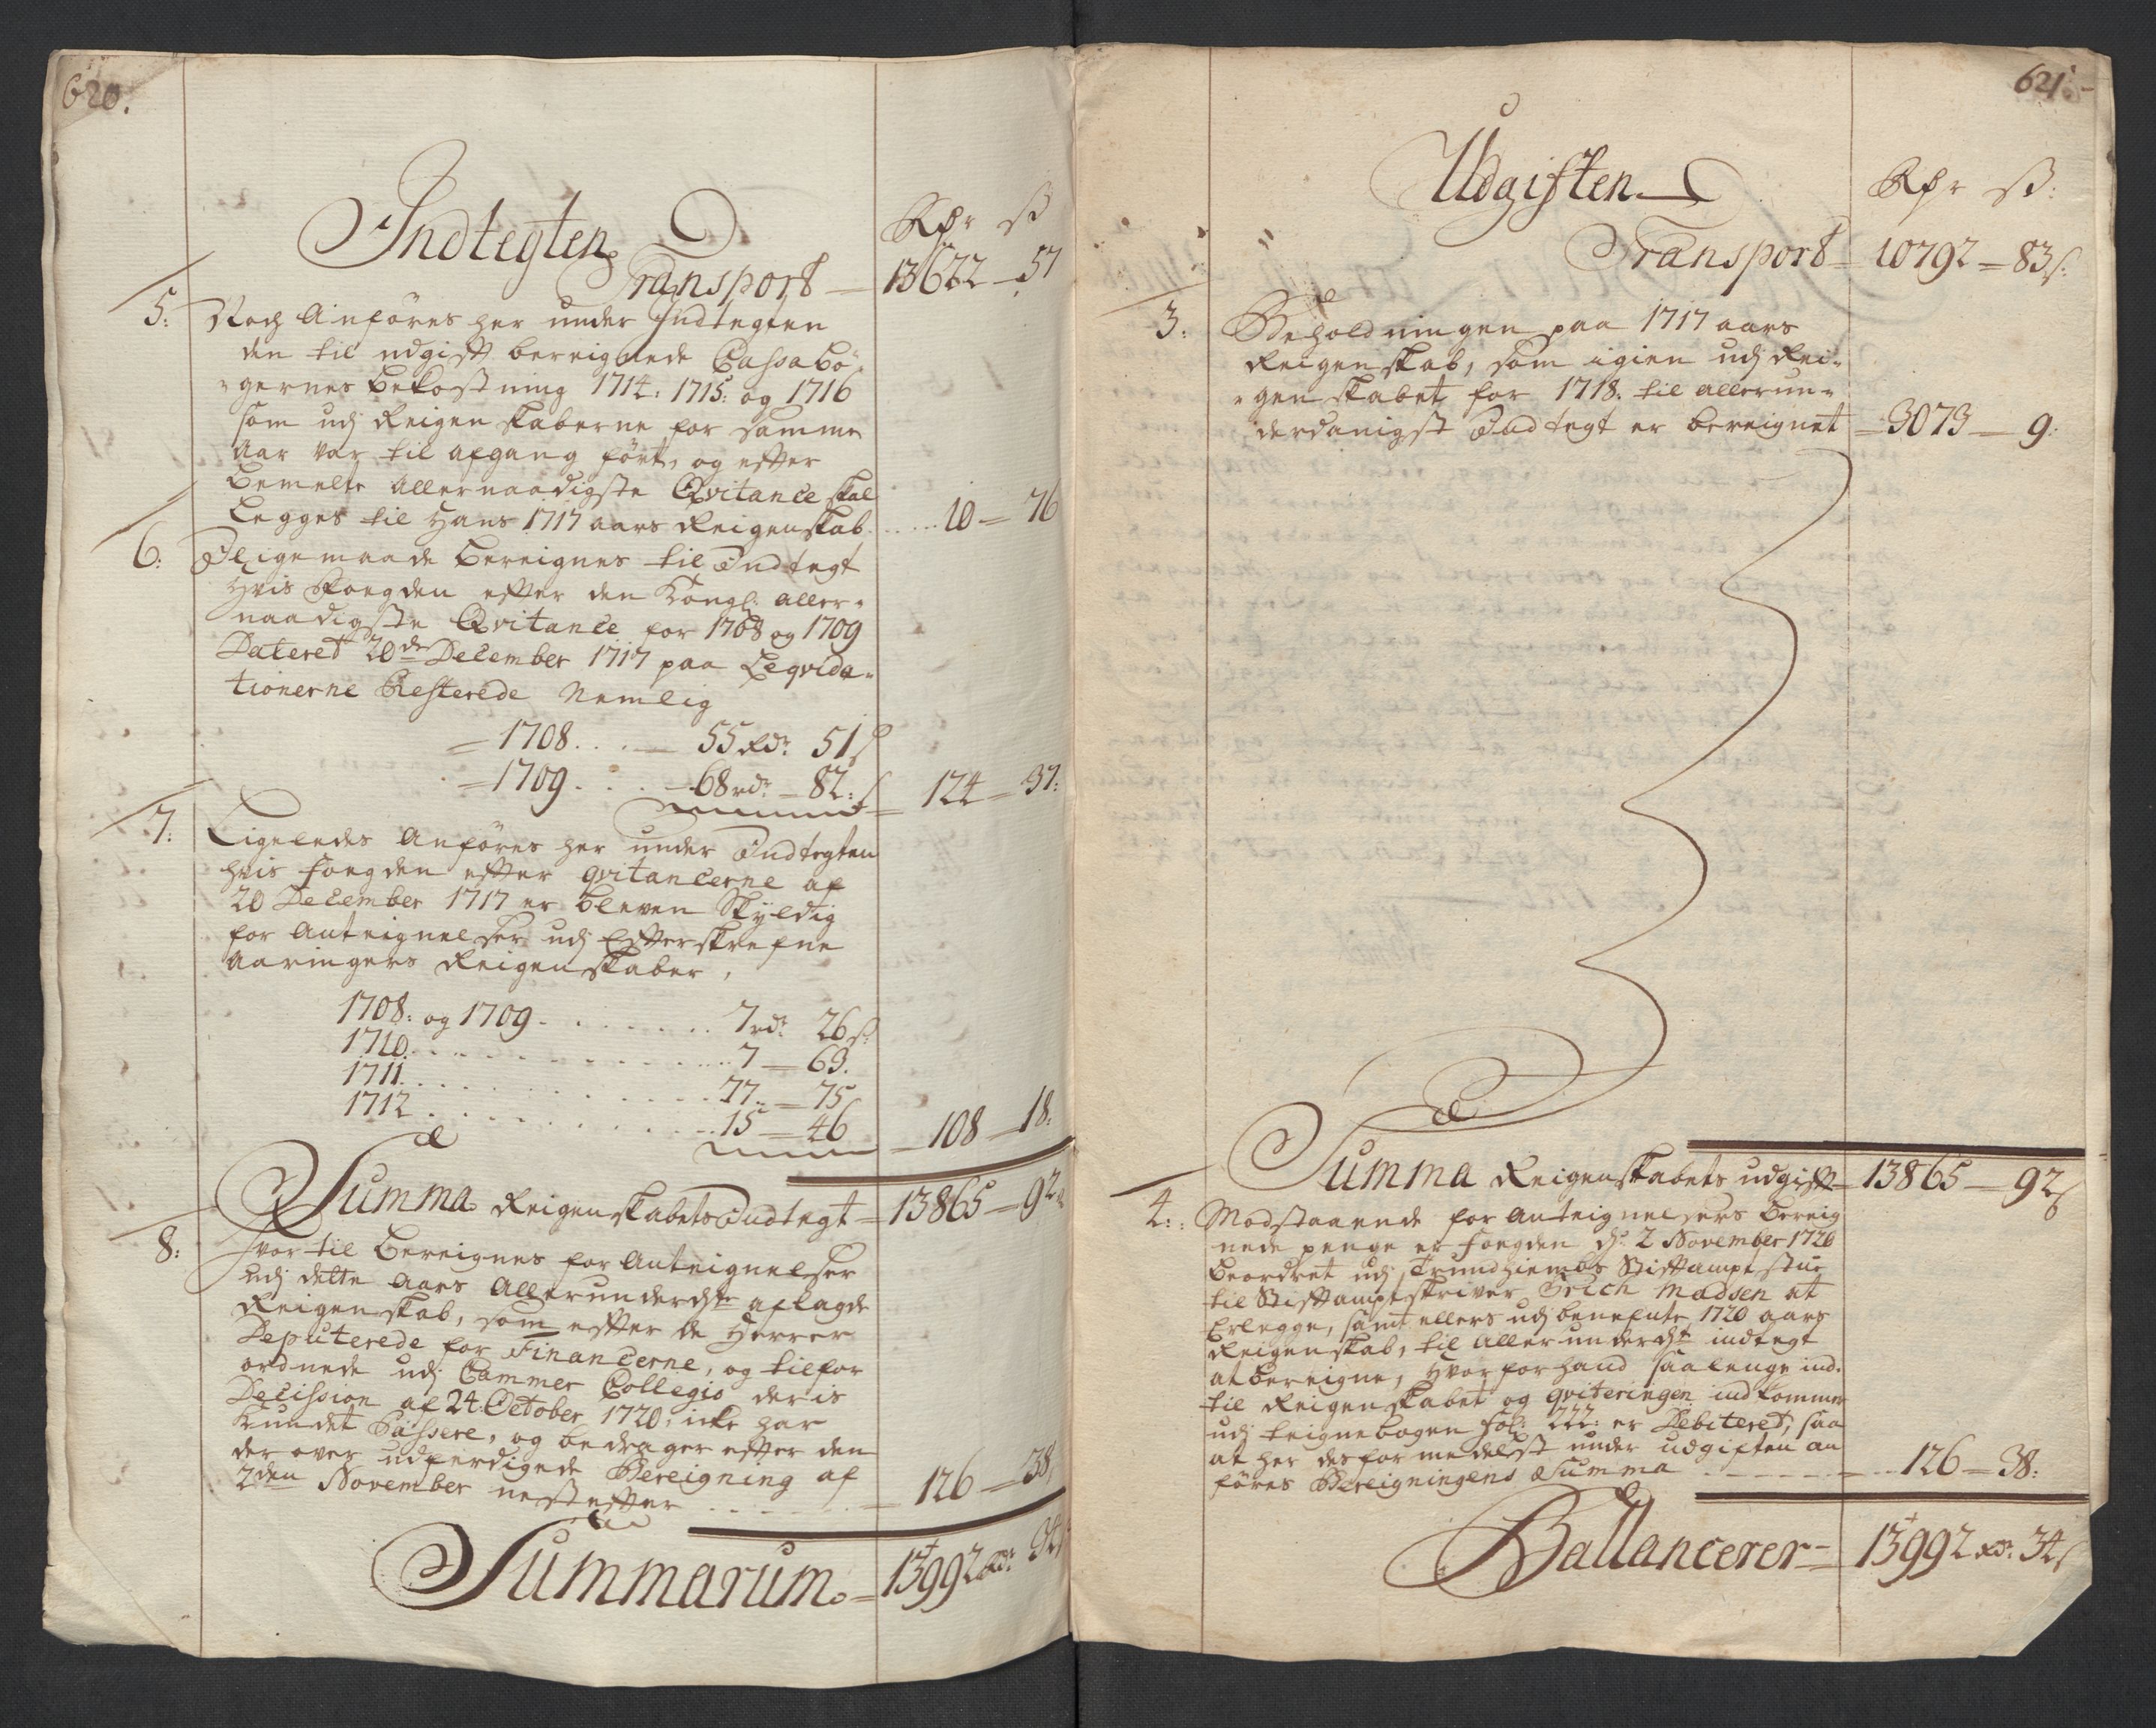 620.
Indtegten
Rdr ß
Transport — 13622 — 57
5: Noch Anföres her under Indtegten
den til udgift bereignede Cassa Bö-
gernes bekostning 1714: 1715: og 1716
som udj Reigenskaberne for samme
Aar var til afgang fört, og efter
bemelte Allernaadigste Qvitance skal
Legges til Hans 1717 aars Reigenskab ..... 10 — 76
6: Ligemaade bereignes til Indtegt
Hvis Fogden efter den Kongl: aller-
naadigste Qvitance for 1708 og 1709
Dateret 20de December 1717 paa Leqvida-
tionerne Resterede Nemlig
1708 . . . — 55 Rdr 51 ß
1709 . . . — 68 rdr — 82: ß — 124 — 37:
7: Ligeledes Anföres her under Indtegten
hvis fogden efter qvitancerne af
20 December 1717 er bleven Skyldig
for Anteignelser udj Efterskrefne
Aaringers Reigenskaber,
1708: og 1709 . . . . . . . 7 rdr 26 ß:
1710 . . . . . . . 7 — 63.
1711 . . . . . . . 77: — 75
1712 . . . . . . . 15 — 46 — 108 — 18:
Summa Reigenskabets Indtegt — 13865 — 92 ß
8: Hvortil bereignes for Anteignelser
udj dette Aars Allerunderdste aflagde
Reigenskab, som efter de Herrer
Deputerede for Financerne, og tilfor
ordnede udj Cammer Collegio deris
Decission af 24: October 1720; icke har
Kundet Passere, og bedrager efter den
der over udferdigede Bereigning af
2den November nestefter . . . . . — 126 — 38,
Summarum — 13992 Rdr 34 ß
621:
Udgiften
Rdr ß:
Transport — 10792 — 83 ß:
3: Beholdningen paa 1717 aars
Reigenskab, som igien udj Rei-
genskabet for 1718. til allerun-
derdanigst Indtegt er bereignet — 3073 — 9:
Summa Reigenskabets udgift — 13865 — 92 ß
4: Modstaaende for Anteignelsers bereig
nede penge er fogden d: 2 November 1720
beordret udj Trundhiembs Stiftamptstue
til Stiftamptskriver Erich Madsen at
Erlegge, samt ellers udj benefnte 1720 aars
Reigenskab, til Allerunderdste indtegt
at bereigne, hvorfor hand saalenge ind-
til Reigenskabet og qviteringen indkommer
udj teignebogen fol: 222: er Debiteret, saa
at her desformedelst under udgiften an
föres Bereigningens Summa . . . . . 126 — 38:
Ballancerer — 13992 Rdr: 34 ß